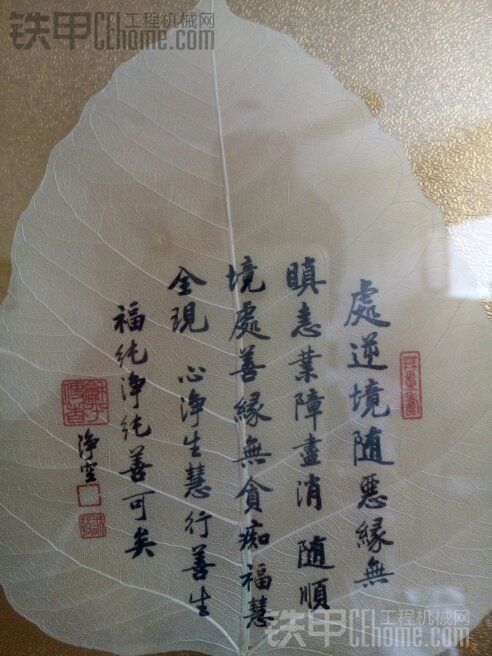 铁甲 工程机械网
CEhome.com
處逆境随惡緣無
瞋恚業障盡消 随順
境處善緣無貪痴福慧
全現 心淨生慧行善生
福純淨純善可矣
淨空
無量壽
铁甲 工程机械网
CEhome.com